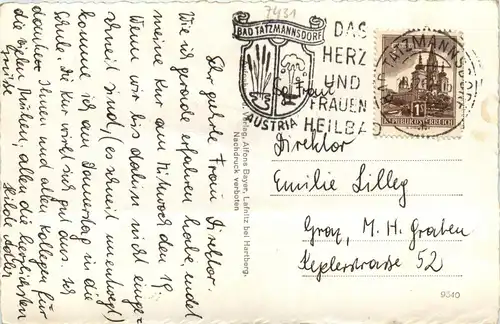 7431
BAD TATZMANNSDORF
AUSTRIA
DAS
HERZ
UND
FRAUEN
HEILBAD
BAD TATZMANNSDORF
REPUBLIK ÖSTERREICH
Sehr geehrte Frau Direktor.
Wie ich gerade erfahren habe, endet
meine Kur am Mittwoch den 19.
Wenn wir bis dahin nicht einge-
schneit sind, (es schneit unentwegt)
komme ich am Donnerstag in die
Schule. Die Kur wirkt sich gut aus. Ich
danke Ihnen und allen Kollegen für
die vielen Mühen, allen die herzlichsten
Grüße Hilde
Verlag, Alfons Bayer, Lafnitz bei Hartberg.
Nachdruck verboten
Frau
Direktor
Emilie Lilleg
Graz, M. H. Graben
Keplerstrasse 52
9340